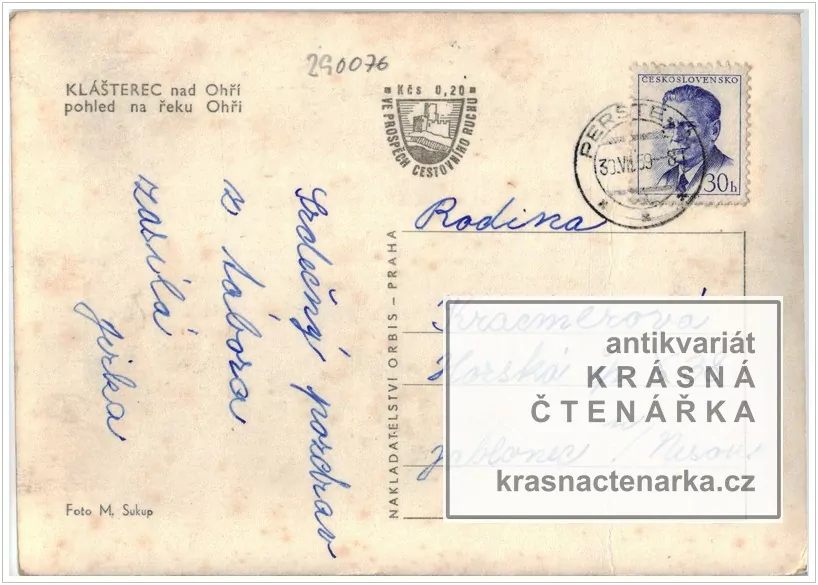 290076
KLÁŠTEREC nad Ohří
pohled na řeku Ohři
Kčs 0,20
VE PROSPĚCH CESTOVNÍHO RUCHU
ČESKOSLOVENSKO
30h
Srdečný pozdrav
z tábora
zasílá
Jirka
Rodina
Jablonec n/Nisou
NAKLADATELSTVÍ ORBIS – PRAHA
Foto M. Sukup
antikvariát
KRÁSNÁ
ČTENÁŘKA
krasnactenarka.cz